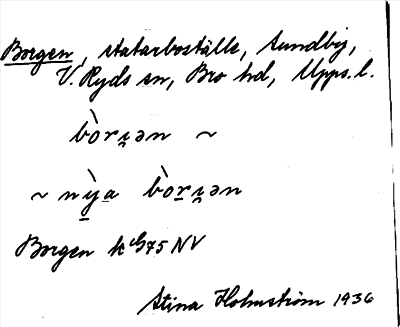 Borgen, statarboställe, Sundby,
V. Ryds sn, Bro hd, Upps. l.
bòri̯ən ~
~ nỳa bòri̯ən
Borgen k 75 NV
Stina Holmström 1936